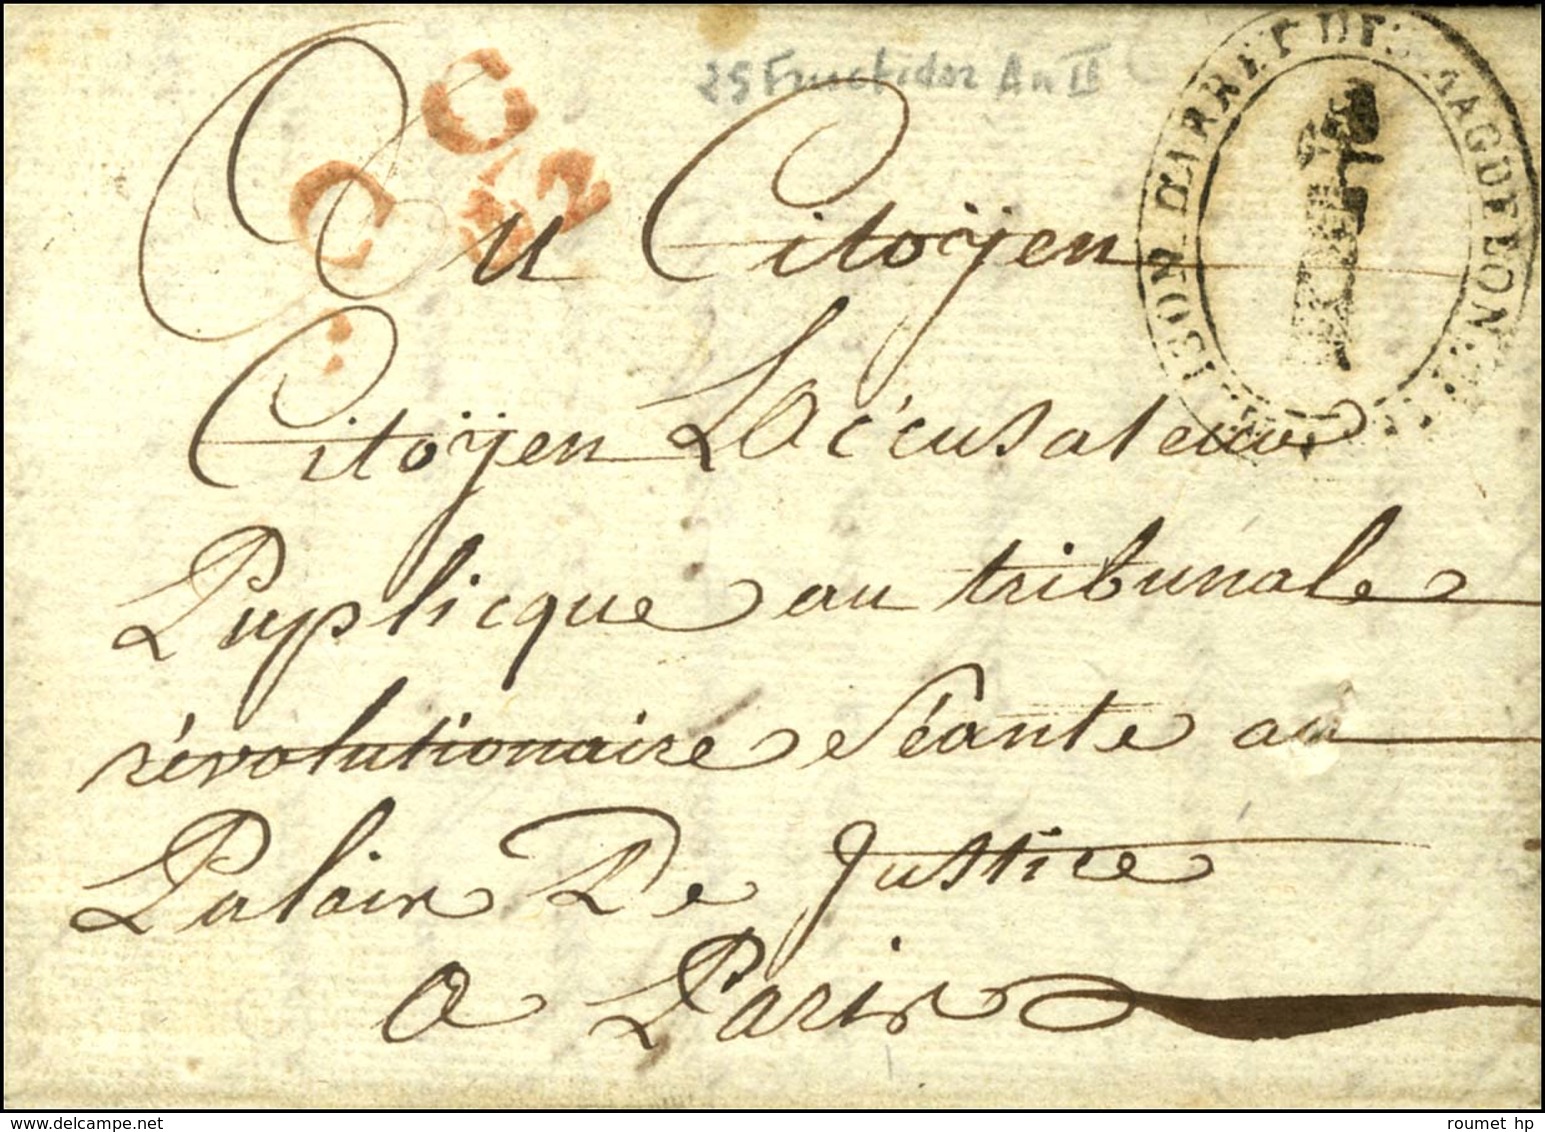 25 Fructidor An II
C C
2
ISON D'ARRET DES MAGDELON
Au Citoyen
Citoyen L'Accusateur
Puplicque au tribunale
révolutionaire Séante au
Palais De Justice
a Paris
roumet hp